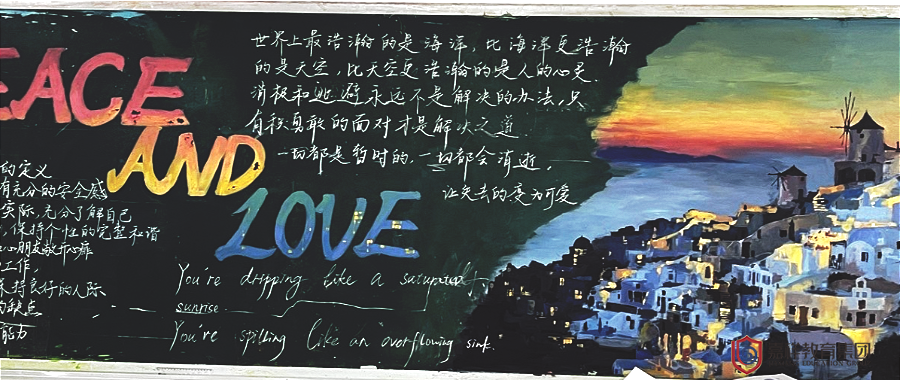 EACE
AND
LOVE
世界上最浩瀚的是海洋，比海洋更浩瀚
的是天空，比天空更浩瀚的是人的心灵.
消极和逃避永远不是解决的办法，只
有积勇敢的面对才是解决之道.
一切都是暂时的，一切都会消逝，
让失去的变为可爱
的定义
有充分的安全感
实际，充分了解自己
保持个性的完整和谐
心朋友敞开心扉
工作，
保持良好的人际
的缺点
能力
You're dripping like a saturated
sunrise
You're spilling like an overflowing sink.
教育集团